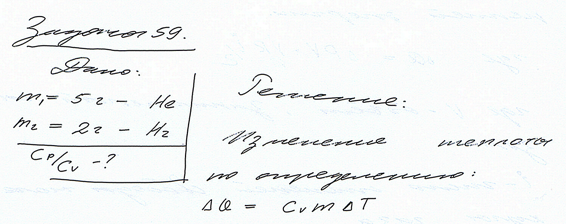 Задача 59.
Дано:
m₁ = 5 г – He
m₂ = 2 г – H₂
Cp/Cv – ?
Решение:
Изменения теплоты
по определению:
ΔQ = Cv m ΔT